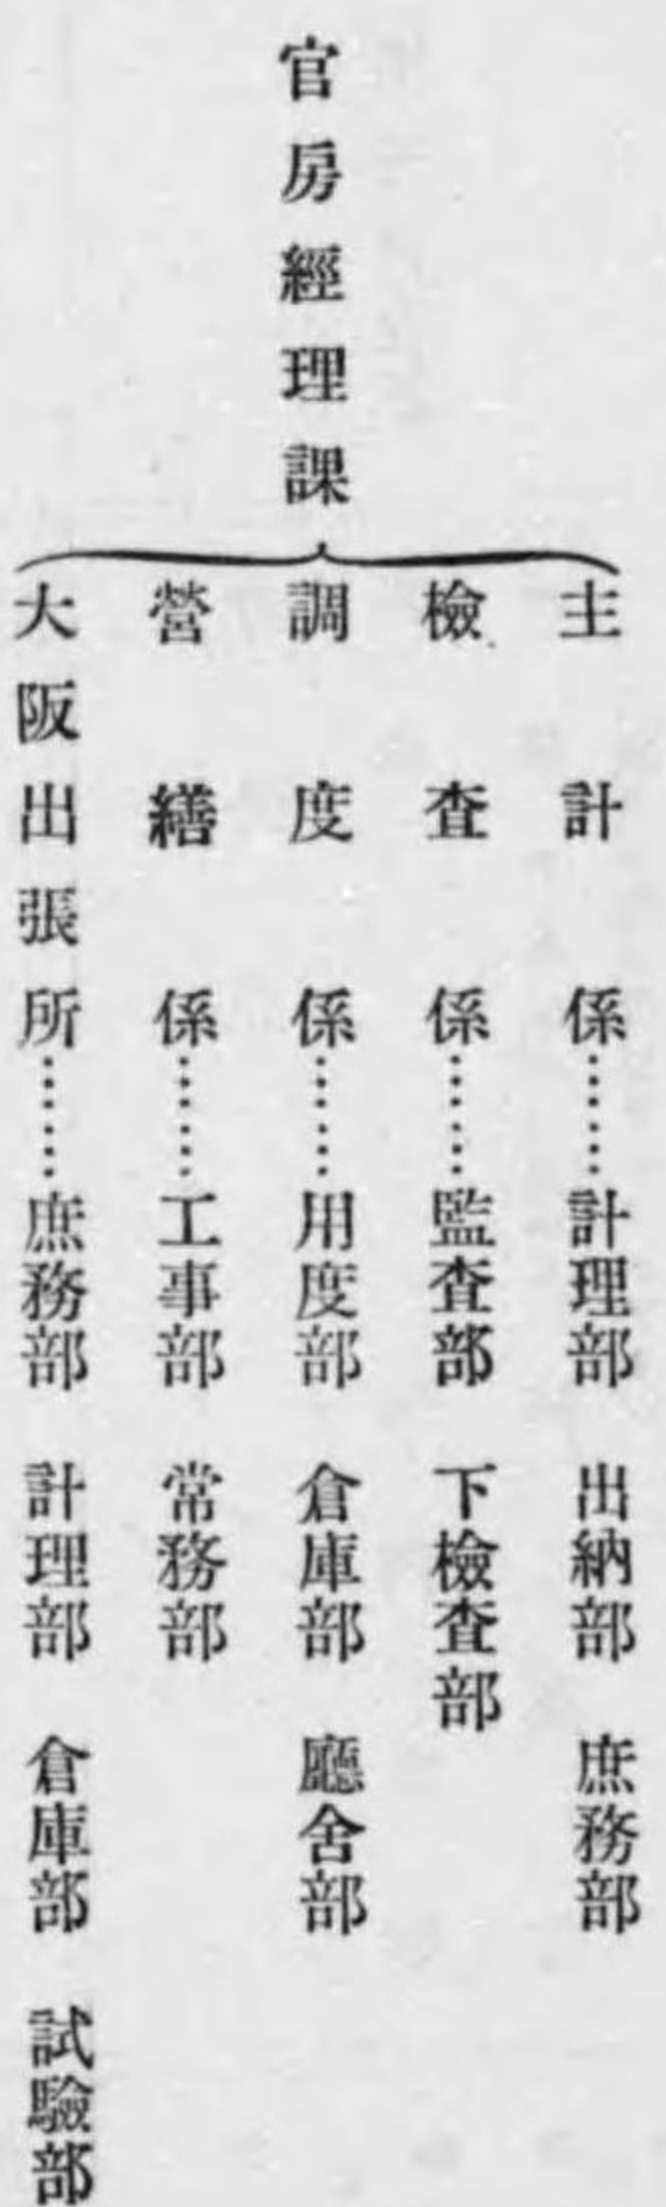 官房經理課
主計係……計理部 出納部 庶務部
檢査係……監査部 下檢査部
調度係……用度部 倉庫部 廳舍部
營繕係……工事部 常務部
大阪出張所……庶務部 計理部 倉庫部 試驗部